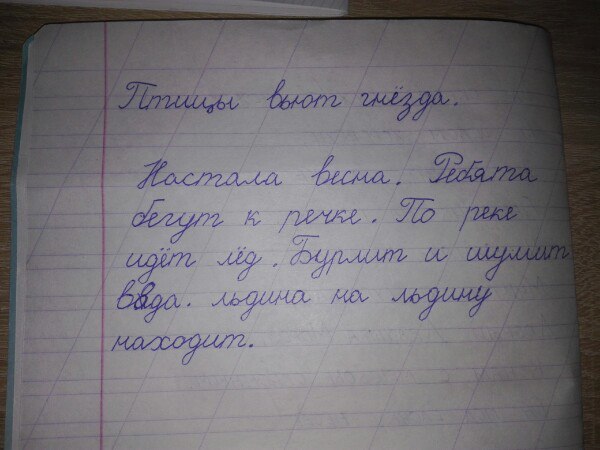 Птицы вьют гнёзда.
Настала весна. Ребята
бегут к речке. По реке
идёт лёд. Бурлит и шумит
вода. льдина на льдину
находит.